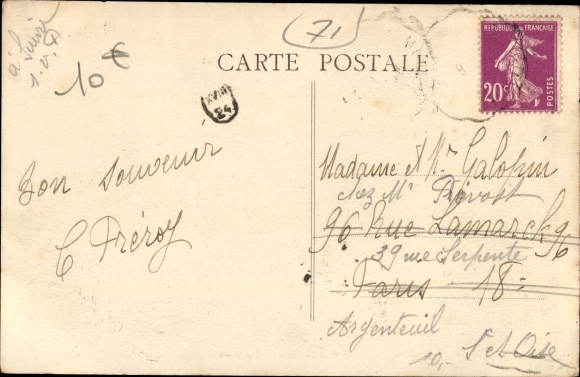 71
10 €
CARTE POSTALE
REPUBLIQUE FRANÇAISE
20c
POSTES
XVIII
24
Bon souvenir
C Fréroy
Madame et Mr Galopin
chez Mr Prévost
96 Rue Lamarck 96
39 rue Serpente
Paris 18
Argenteuil
10,- S et Oise